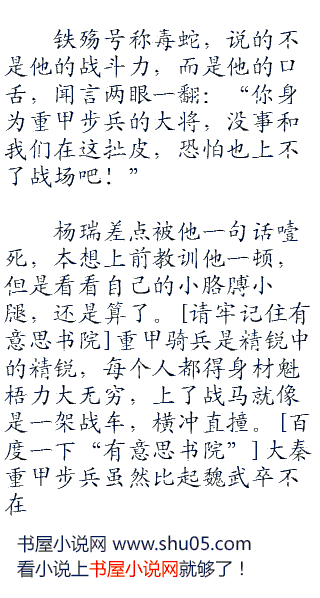 铁殇号称毒蛇，说的不
是他的战斗力，而是他的口
舌，闻言两眼一翻：“你身
为重甲步兵的大将，没事和
我们在这扯皮，恐怕也上不
了战场吧！”
杨瑞差点被他一句话噎
死，本想上前教训他一顿，
但是看看自己的小胳膊小
腿，还是算了。[请牢记住有
意思书院]重甲骑兵是精锐中
的精锐，每个人都得身材魁
梧力大无穷，上了战马就像
是一架战车，横冲直撞。[百
度一下“有意思书院”]大秦
重甲步兵虽然比起魏武卒不
在
书屋小说网 www.shu05.com
看小说上书屋小说网就够了！